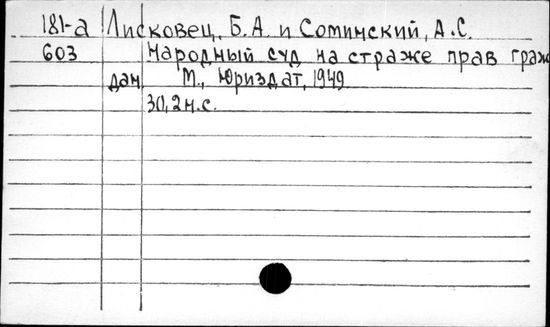 181-а Лисковец, Б.А. и Соминский, А.С.
603 Народный суд на страже прав граж
дан М., Юриздат, 1949
30,2н.с.